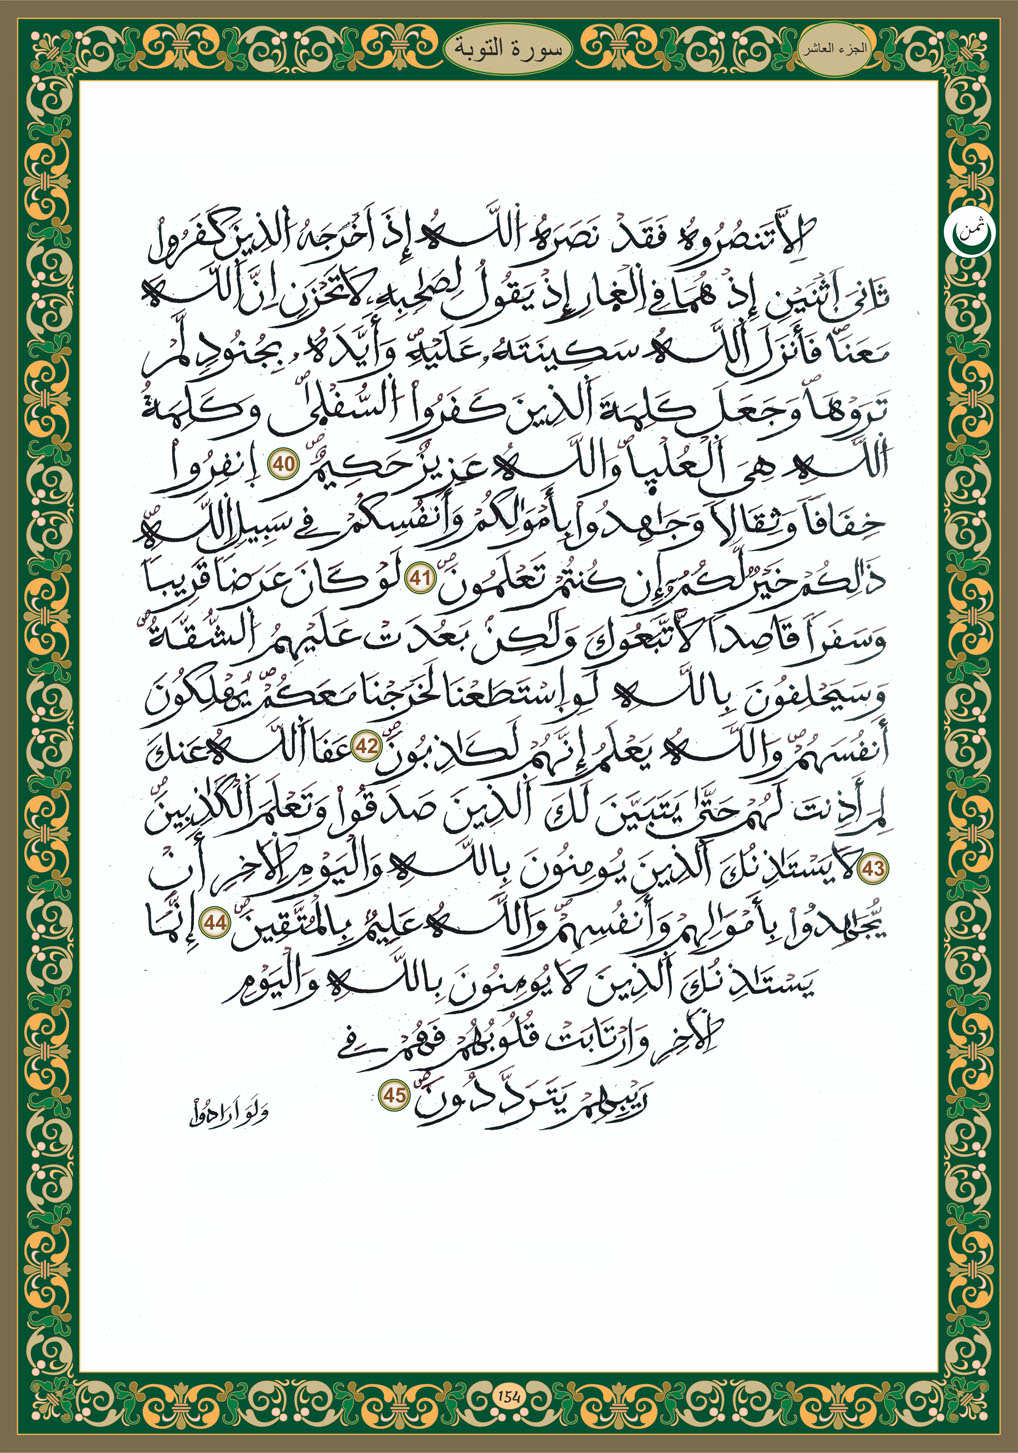 سورة التوبة
الجزء العاشر
ثمن
اِلَّا تَنصُرُوهُ فَقَدْ نَصَرَهُ اُللَّهُ إِذَ اَخْرَجَهُ اُلذِينَ كَفَرُواْ
ثَانِيَ اَثْنَيْنِ إِذْ هُمَا فِے اِلْغ۪ارِ إِذْ يَقُولُ لِصَٰحِبِهِۦ لَا تَحْزَنِ اِنَّ اَللَّهَ
مَعَنَاۖ فَأَنزَلَ اَللَّهُ سَكِينَتَهُۥ عَلَيْهِۖ وَأَيَّدَهُۥ بِجُنُودٖ لَّمْ
تَرَوْهَاۖ وَجَعَلَ كَلِمَةَ اَلذِينَ كَفَرُواْ اُلسُّفْلَىٰۖ وَكَلِمَةُ
اُللَّهِ هِيَ اَلْعُلْيَاۖ وَاللَّهُ عَزِيزٌ حَكِيمٌۖ 40 اِنفِرُواْ
خِفَافاٗ وَثِقَالاٗ وَجَٰهِدُواْ بِأَمْوَٰلِكُمْ وَأَنفُسِكُمْ فِے سَبِيلِ اِللَّهِۖ
ذَٰلِكُمْ خَيْرٞ لَّكُمُۥٓ إِن كُنتُمْ تَعْلَمُونَۖ 41 لَوْ كَانَ عَرَضاٗ قَرِيباٗ
وَسَفَراٗ قَاصِداٗ لَّاتَّبَعُوكَ وَلَٰكِنۢ بَعُدَتْ عَلَيْهِمُ اُلشُّقَّةُۖ
وَسَيَحْلِفُونَ بِاللَّهِ لَوِ اِسْتَطَعْنَا لَخَرَجْنَا مَعَكُمْۖ يُهْلِكُونَ
أَنفُسَهُمْۖ وَاللَّهُ يَعْلَمُ إِنَّهُمْ لَكَٰذِبُونَۖ 42 عَفَا اَللَّهُ عَنكَ
لِمَ أَذِنتَ لَهُمْ حَتَّىٰ يَتَبَيَّنَ لَكَ اَلذِينَ صَدَقُواْ وَتَعْلَمَ اَلْكَٰذِبِينَۖ
43 لَا يَسْتَٰذِنُكَ اَلذِينَ يُومِنُونَ بِاللَّهِ وَالْيَوْمِ اِلَاخِرِ أَنْ
يُّجَٰهِدُواْ بِأَمْوَٰلِهِمْ وَأَنفُسِهِمْۖ وَاللَّهُ عَلِيمُۢ بِالْمُتَّقِينَۖ 44 إِنَّمَا
يَسْتَٰذِنُكَ اَلذِينَ لَا يُومِنُونَ بِاللَّهِ وَالْيَوْمِ
اِلَاخِرِ وَارْتَابَتْ قُلُوبُهُمْ فَهُمْ فِے
رَيْبِهِمْ يَتَرَدَّدُونَۖ 45
وَلَوَ اَرَادُواْ
154